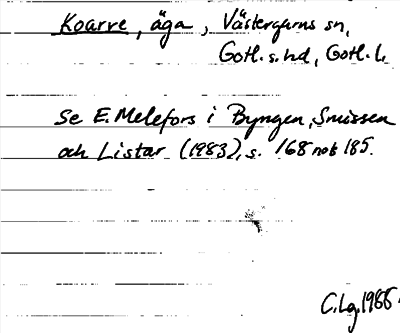 Koarve, äga, Västergarns sn,
Gotl. s. hd, Gotl. l.
Se E. Melefors i Byngen, Snissen
och Listar (1983), s. 168 not 185.
C.Lg. 1988.